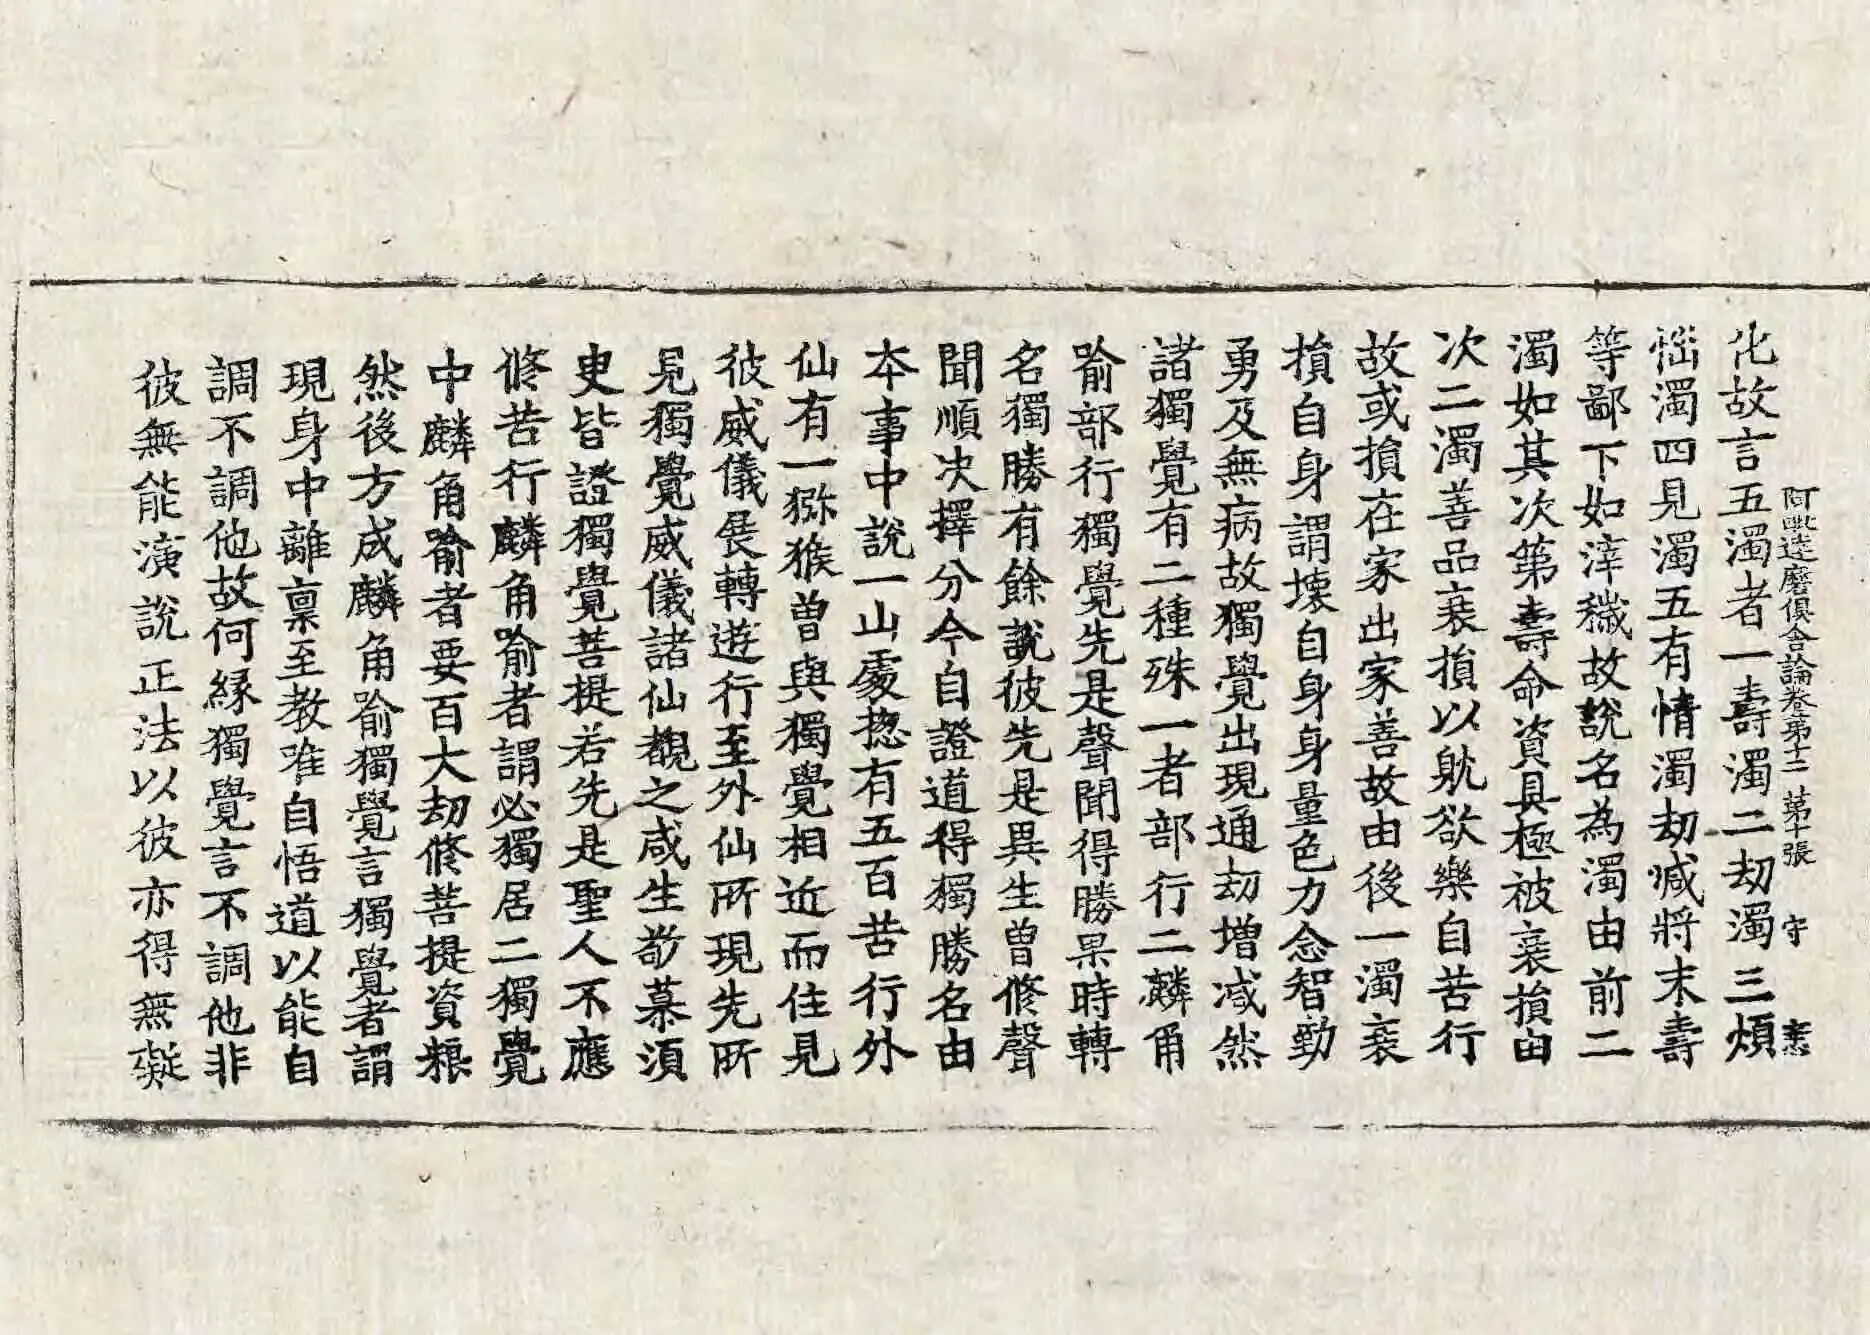 阿毗達磨俱舍論卷第十二 第十張 守
化故言五濁者一壽濁二劫濁三煩
惱濁四見濁五有情濁劫減將末壽
等鄙下如滓穢故說名為濁由前二
濁如其次第壽命資具極被衰損由
次二濁善品衰損以躭欲樂自苦行
故或損在家出家善故由後一濁衰
損自身謂壞自身身量色力念智勤
勇及無病故獨覺出現通劫增减然
諸獨覺有二種殊一者部行二麟角
喻部行獨覺先是聲聞得勝果時轉
名獨勝有餘說彼先是異生曾修聲
聞順决擇分今自證道得獨勝名由
本事中說一山處揔有五百苦行外
仙有一獼猴曾與獨覺相近而住見
彼威儀展轉遊行至外仙所現先所
見獨覺威儀諸仙覩之咸生敬慕須
臾皆證獨覺菩提若先是聖人不應
修苦行麟角喻者謂必獨居二獨覺
中麟角喻者要百大劫修菩提資粮
然後方成麟角喻獨覺言獨覺者謂
現身中離禀至教唯自悟道以能自
調不調他故何緣獨覺言不調他非
彼無能演說正法以彼亦得無礙